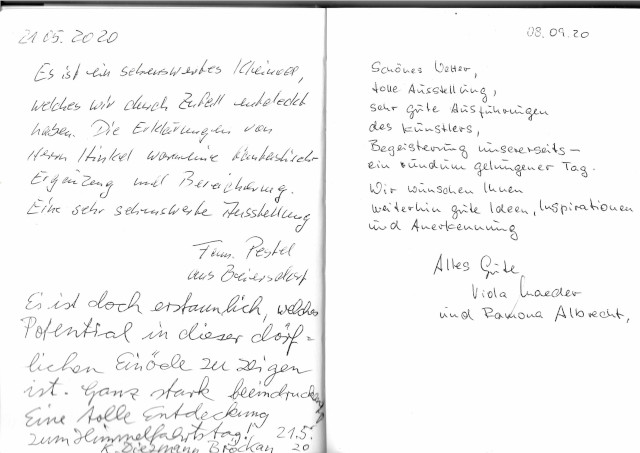 21.05.2020
Es ist ein sehenswertes Kleinod,
welches wir durch Zufall entdeckt
haben. Die Erklärungen von
Herrn Hinkel waren eine
Ergänzung und Bereicherung.
Eine sehr sehenswerte Ausstellung
Fam. Pestel
aus Baiersdorf
Es ist doch erstaunlich, welches
Potential in dieser dörf=
lichen Einöde zu zeigen
ist. Ganz stark beeindruckend
Eine tolle Entdeckung
zum Himmelfahrtstag! 21.5.
20
08.09.20
Schönes Wetter,
tolle Ausstellung,
sehr gute Ausführungen
des Künstlers,
Begeisterung unsererseits –
ein rundum gelungener Tag.
Wir wünschen Ihnen
weiterhin gute Ideen, Inspirationen
und Anerkennung
Alles Gute
Viola Maeder
und Ramona Albrecht,